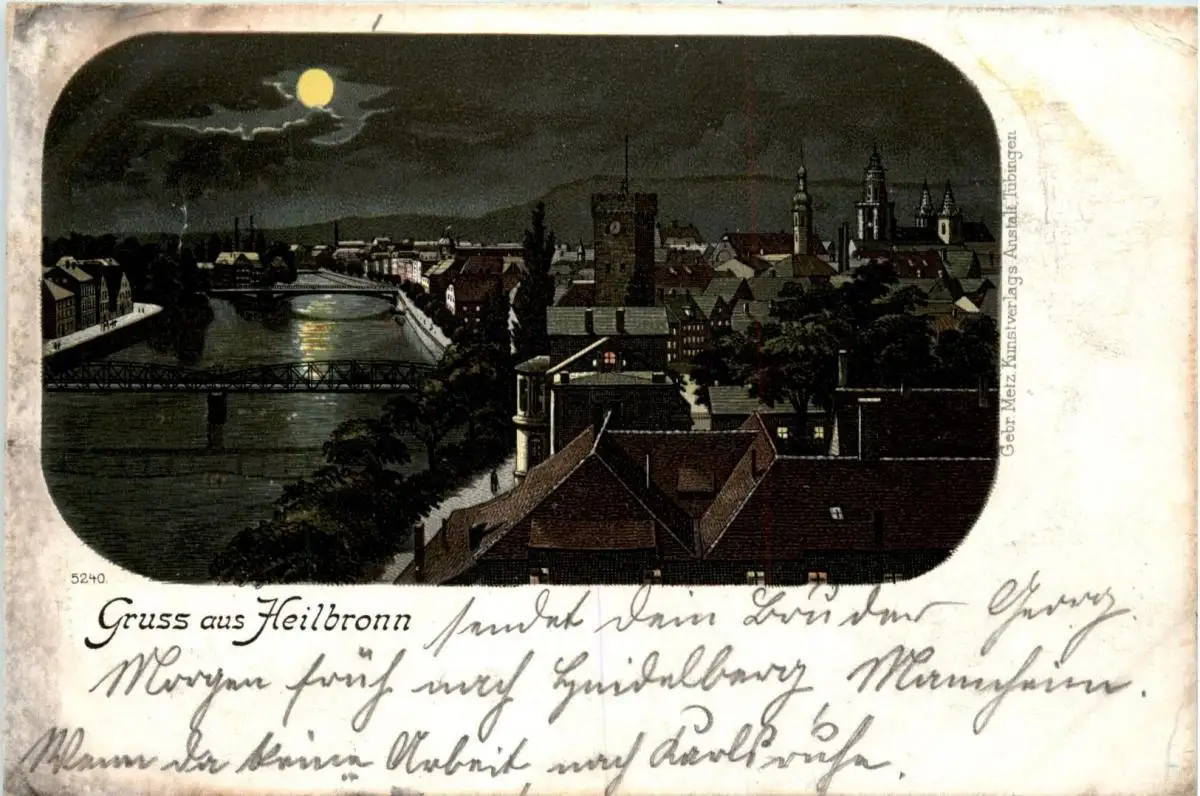 Gebr. Metz Kunstverlags Anstalt Tübingen
5240.
Gruss aus Heilbronn sendet dein Bruder Georg.
Morgen früh nach Heidelberg Mannheim.
Wenn da keine Arbeit, nach Karlsruhe.